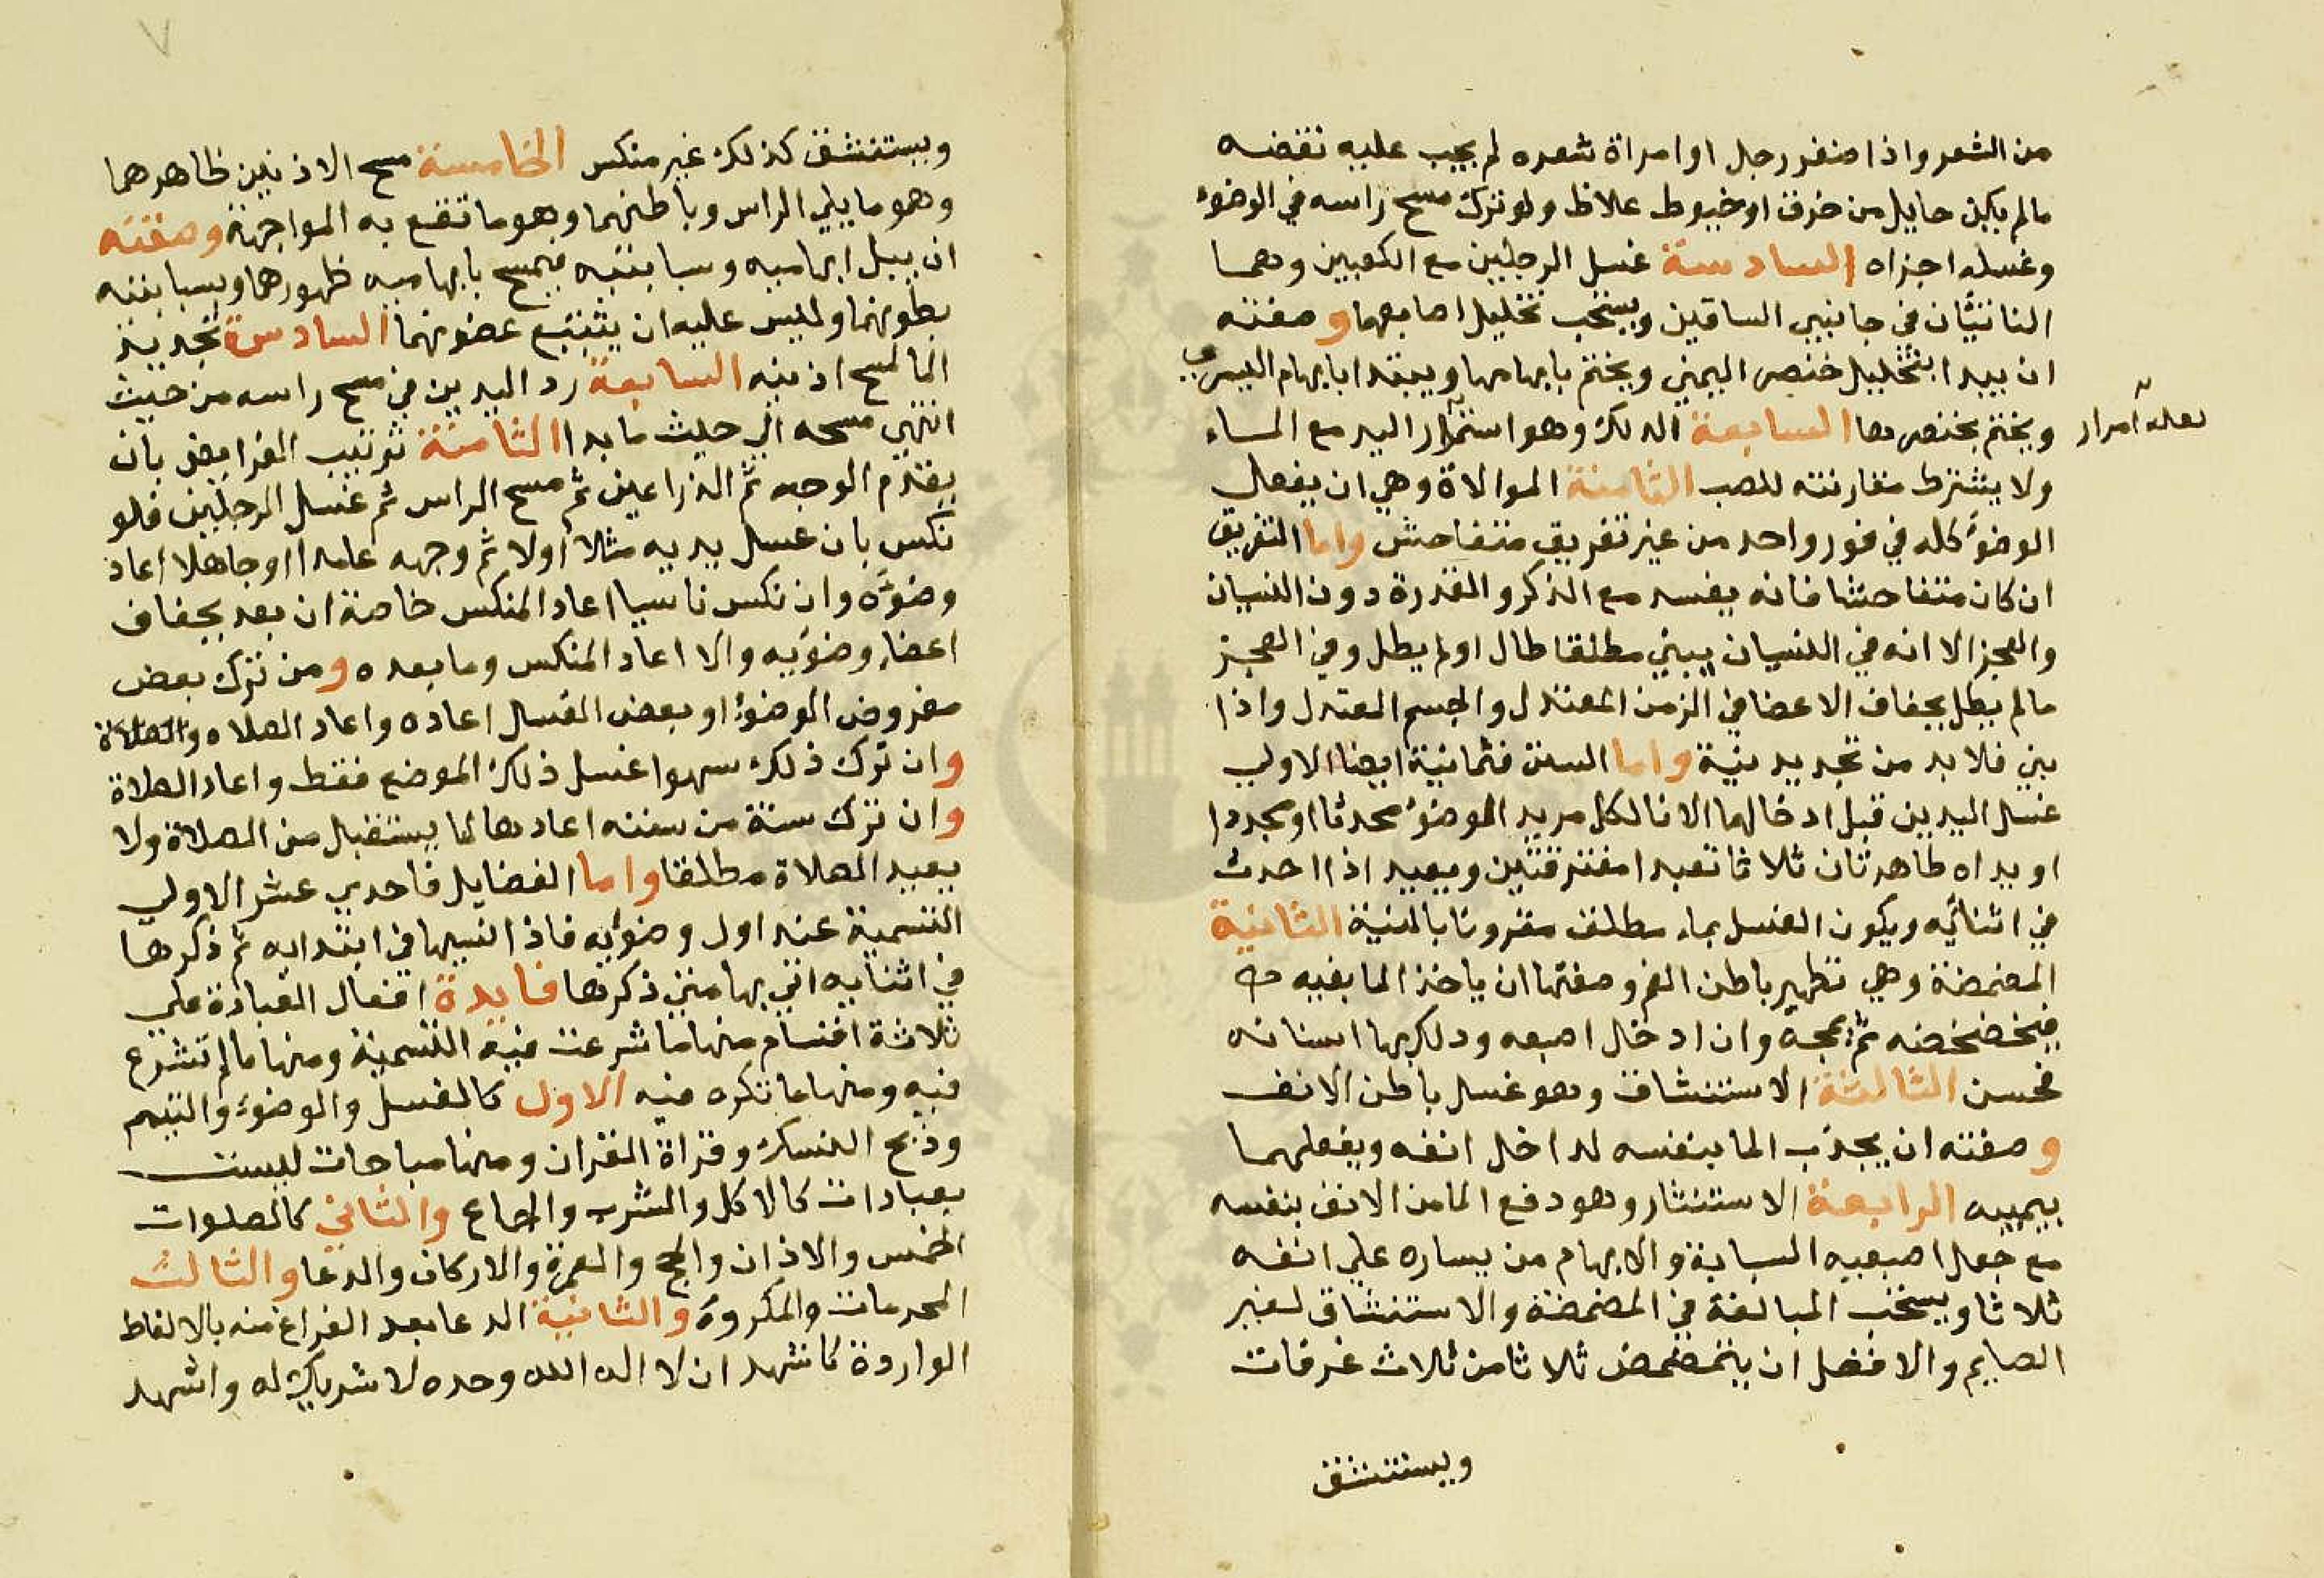 من الشعر واذا ضفر رجل او امراة شعره لم يجب عليه نقضه
مالم يكن حايل من خرق او خيوط غلاظ ولو ترك مسح راسه في الوضوء
وغسله اجزاه السادسة غسل الرجلين مع الكعبين وهما
الناتيّان في جانبي الساقين ويستحب تخليل اصابعهما وصفته
ان يبدا بتخليل خنصر اليمني ويختم بابهامها ويبتدا بابهام اليسري
ويختم بخنصرها السابعة الدلك وهو استمرار اليد مع الماء
لعله امرار
ولا يشترط مقارنته للصب الثامنة الموالاة وهي ان يفعل
الوضوء كله في فور واحد من غير تفريق متفاحش واما التفريق
ان كان متفاحشا فانه يفسد مع الذكر والقدرة دون النسيان
والعجز الا انه في النسيان يبني مطلقا طال او لم يطل وفي العجز
مالم يطل بجفاف الاعضا في الزمن المعتدل والجسم المعتدل واذا
بني فلا بد من تجديد نية واما السنن فثمانية ايضا الاولي
غسل اليدين قبل ادخالهما الانا لكل مريد الوضوء محدثا او مجددا
او يداه طاهرتان ثلاثا تعبدا مفترقتين ويعيد اذا احدث
في اثنائه ويكون الغسل بماء مطلق مقرونا بالنية الثانية
المضمضة وهي تطهير باطن الفم وصفتها ان ياخذ الما بفيه
فيخضخضه ثم يمجه وان ادخل اصبعه ودلك بها اسنانه
فحسن الثالثة الاستنشاق وهو غسل باطن الانف
وصفته ان يجذب الما بنفسه لداخل انفه ويفعلهما
بيمينه الرابعة الاستنثار وهو دفع الما من الانف بنفسه
مع جعل اصبعيه السبابة والابهام من يساره علي انفه
ثلاثا ويستحب المبالغة في المضمضة والاستنشاق لغير
الصايم والافضل ان يتمضمض ثلاثا من ثلاث غرفات
ويستنشق
ويستنشق كذلك غير منكس الخامسة مسح الاذنين ظاهرهما
وهو ما يلي الراس وباطنهما وهو ما تقع به المواجهة وصفته
ان يبل ابهاميه وسبابتيه فيمسح بابهاميه ظهورهما وبسبابتيه
بطونهما وليس عليه ان يتتبع غضونهما السادسة تجديد
الما لمسح اذنيه السابعة رد اليدين في مسح راسه من حيث
انتهي مسحه الي حيث ما بدا الثامنة ترتيب الفرايض بان
يقدم الوجه ثم الذراعين ثم مسح الراس ثم غسل الرجلين فلو
نكس بان غسل يديه مثلا اولا ثم وجهه عامدا او جاهلا اعاد
وضوءه وان نكس ناسيا اعاد المنكس خاصة ان بعد بجفاف
اعضاء وضوئيه والا اعاد المنكس وما بعده ومن ترك بعض
مفروض الوضوء او بعض الغسل اعاده واعاد الصلاه والصلاة
وان ترك ذلك سهوا غسل ذلك الموضع فقط واعاد الصلاة
وان ترك سنة من سننه اعادها لما يستقبل من الصلاة ولا
يعيد الصلاة مطلقا واما الفضايل فاحدي عشر الاولي
التسمية عند اول وضوئه فاذا نسيها في ابتدايه ثم ذكرها
في اثنايه اتي بها متي ذكرها فايدة افعال العبادة علي
ثلاثة اقسام منها ما شرعت فيه التسمية ومنها مالم تشرع
فيه ومنها ما تكره فيه الاول كالغسل والوضوء والتيمم
وذبح النسك وقراة القران ومنها مباحات ليست
بعبادات كالاكل والشرب والجماع والثاني كالصلوات
الخمس والاذان والحج والعمرة والاركان والدعا والثالث
المحرمات والمكروه والثانية الدعا بعد الفراغ منه بالالفاظ
الواردة كاشهد ان لا اله الا الله وحده لا شريك له واشهد